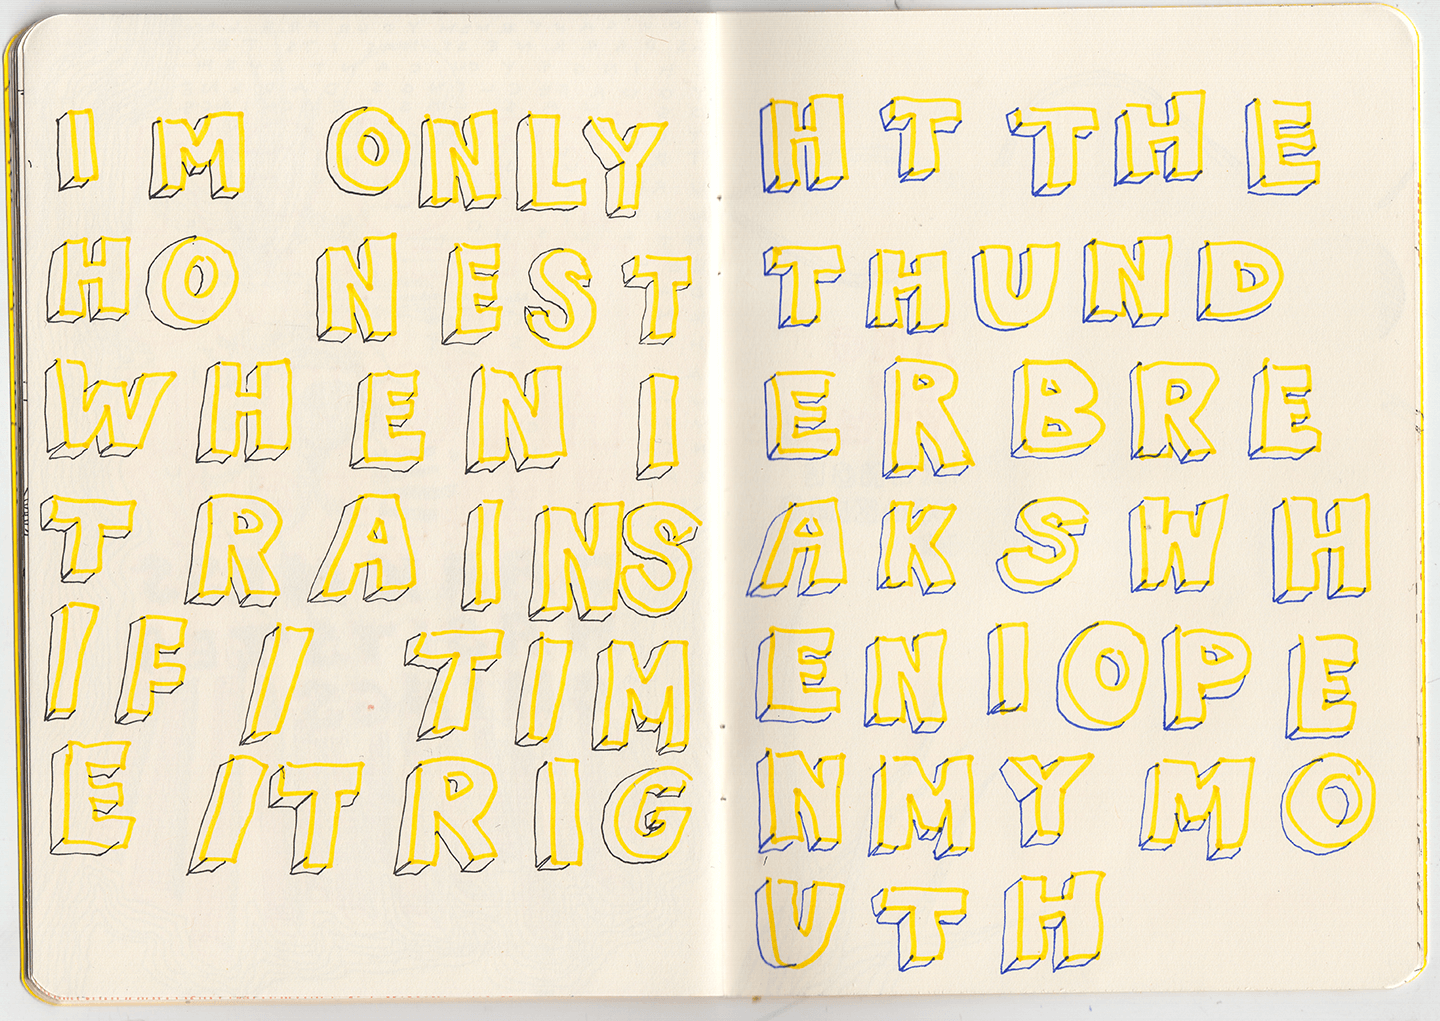 I M ONLY
HO NEST
WHEN I
T RAINS
IF I TIM
E IT RIG
HT THE
THUND
ERBRE
AKSWH
ENIOPE
NMY MO
UTH